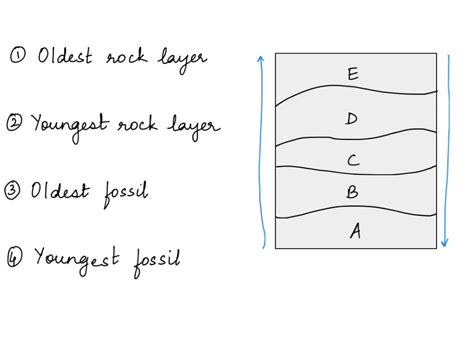 ① Oldest rock layer
② Youngest rock layer
③ Oldest fossil
④ Youngest fossil
E
D
C
B
A